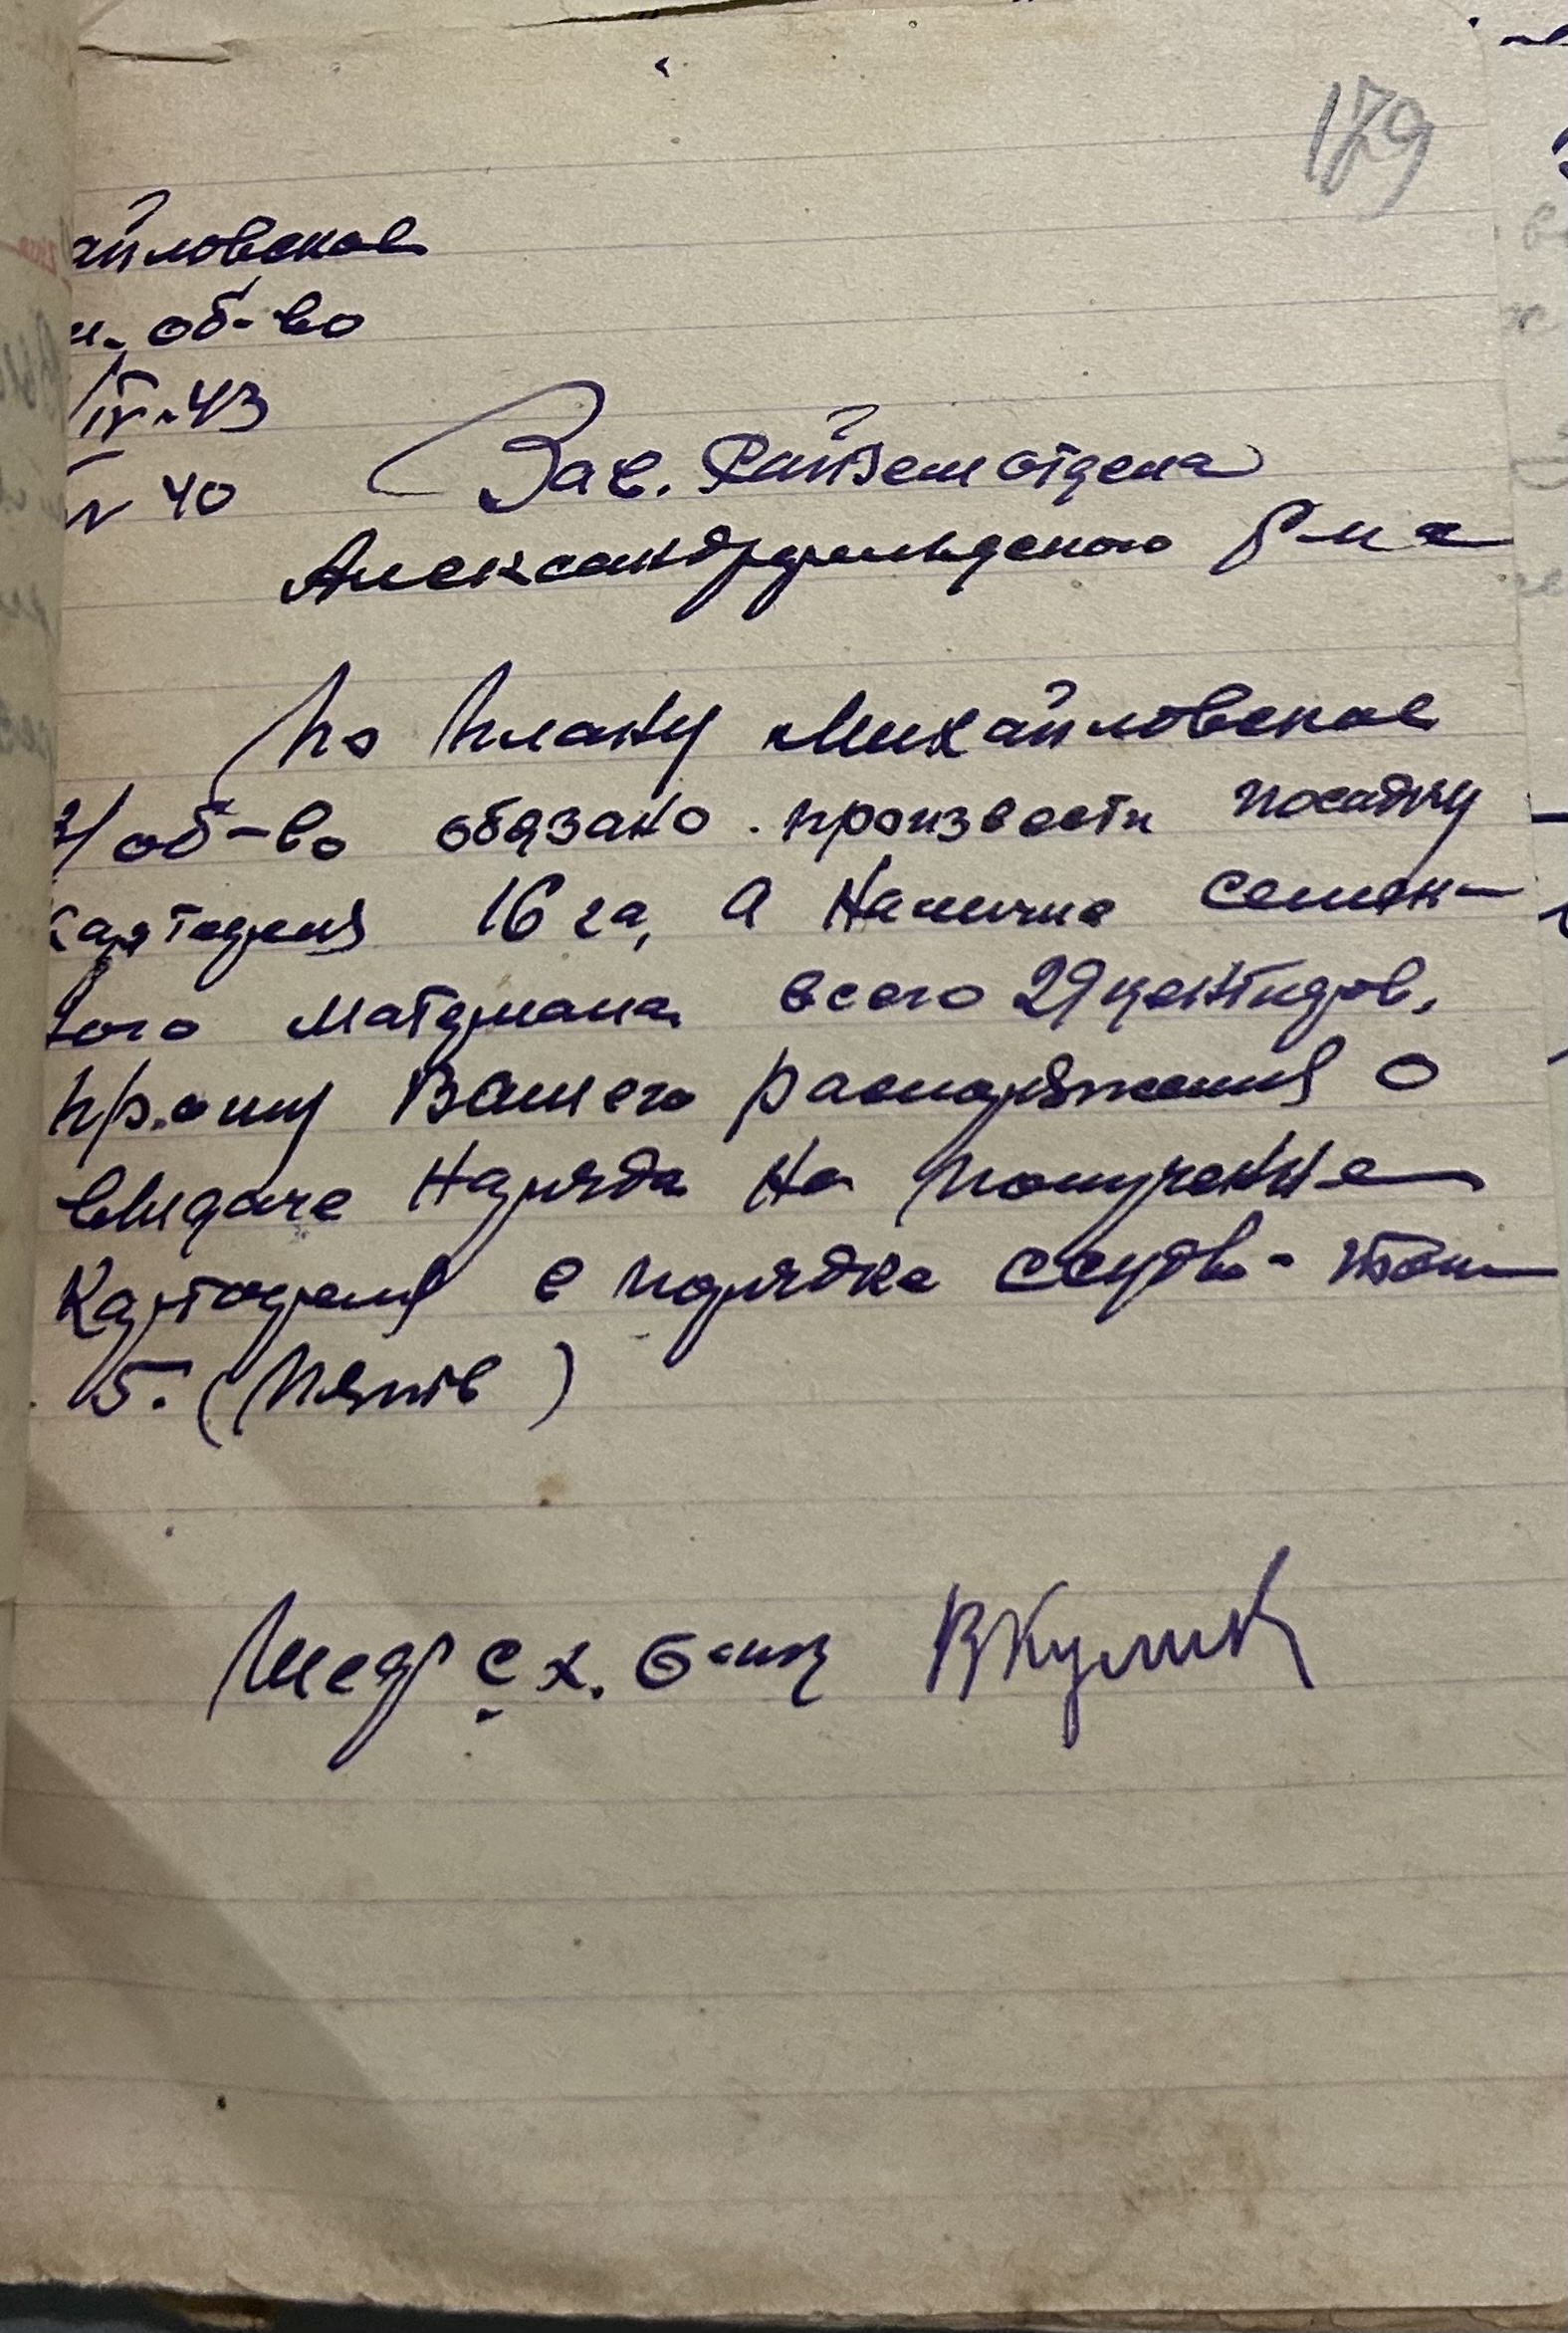 179
айловское
м. об-во
/IV-43
№ 40
Зав. Райземотдела
Александрфельдского р-на
По плану Михайловское
з/об-во обязано произвести посадку
картофеля 16 га, а наличие семен-
ного материала всего 29 центнеров.
Прошу Вашего распоряжения о
выдаче наряда на получение
картофеля в порядке ссуды - тонн
5. (Пять)
с.х. В Кулик